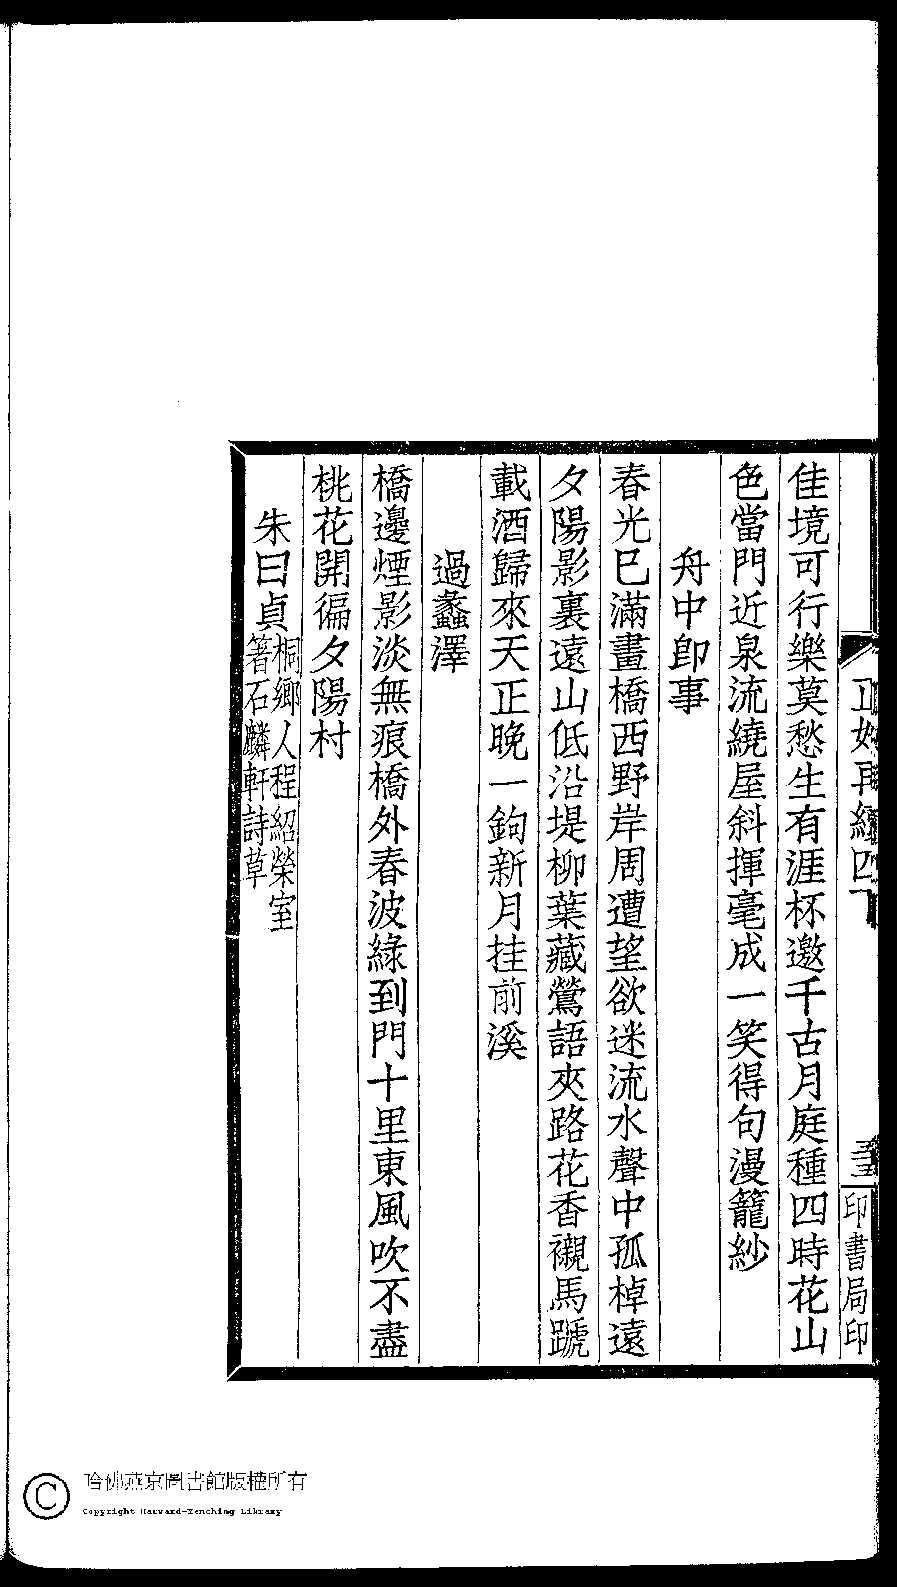 佳境可行樂莫愁生有涯杯邀千古月庭種四時花山
色當門近泉流繞屋斜揮毫成一笑得句漫籠紗
舟中卽事
春光已滿畫橋西野岸周遭望欲迷流水聲中孤棹遠
夕陽影裏遠山低沿堤柳葉藏鶯語夾路花香襯馬蹏
載酒歸來天正晚一鉤新月挂前溪
過蠡澤
橋邊煙影淡無痕橋外春波綠到門十里東風吹不盡
桃花開徧夕陽村
朱曰貞
桐鄉人程紹榮室
箸石麟軒詩草
印書局印
哈佛燕京圖書館版權所有
Copyright Harvard-Yenching Library